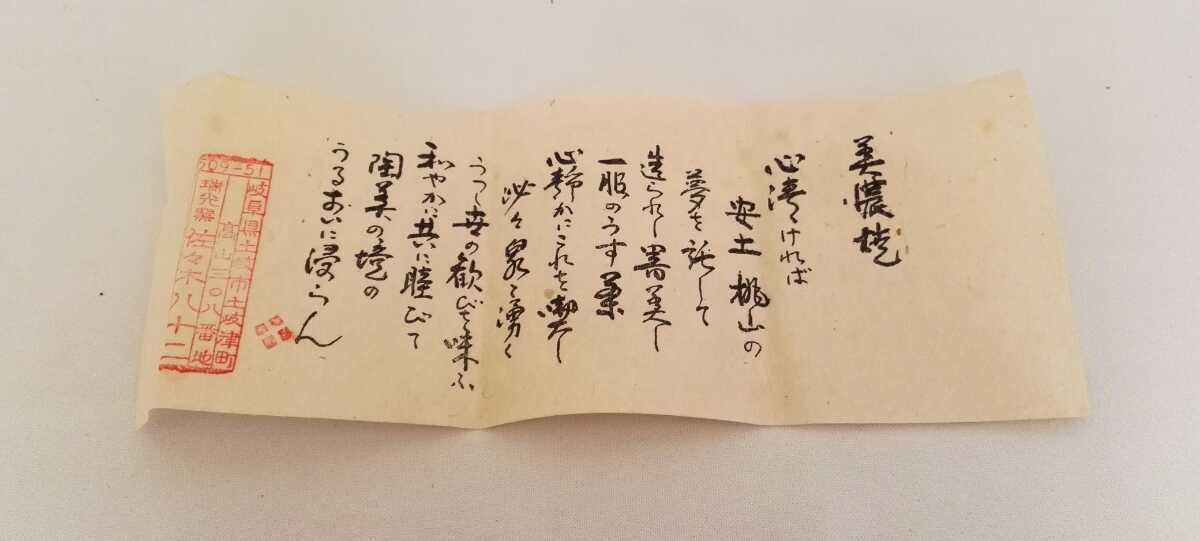 美濃焼
心清ければ
安土桃山の
夢を託して
造られし器美し
一服のうす茶
心静かにこれを喫し
沙々泉と湧く
うつし世の歓びを味ふ
和やかに共に睦びて
陶美の境の
うるおいに浸らん
209-51
岐阜県土岐市土岐津町
高山三〇八番地
瑞光窯 佐々木八十二